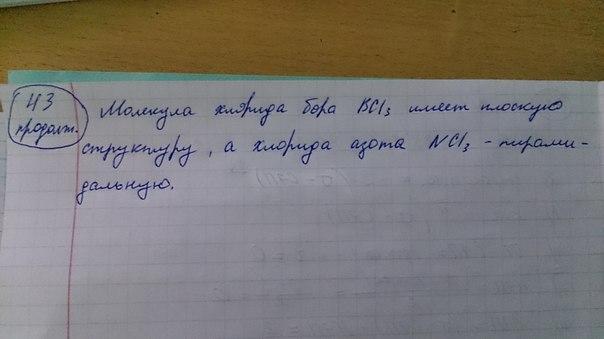 43
продолж.
Молекула хлорида бора BCl₃ имеет плоскую
структуру, а хлорида азота NCl₃ - пирами-
дальную.